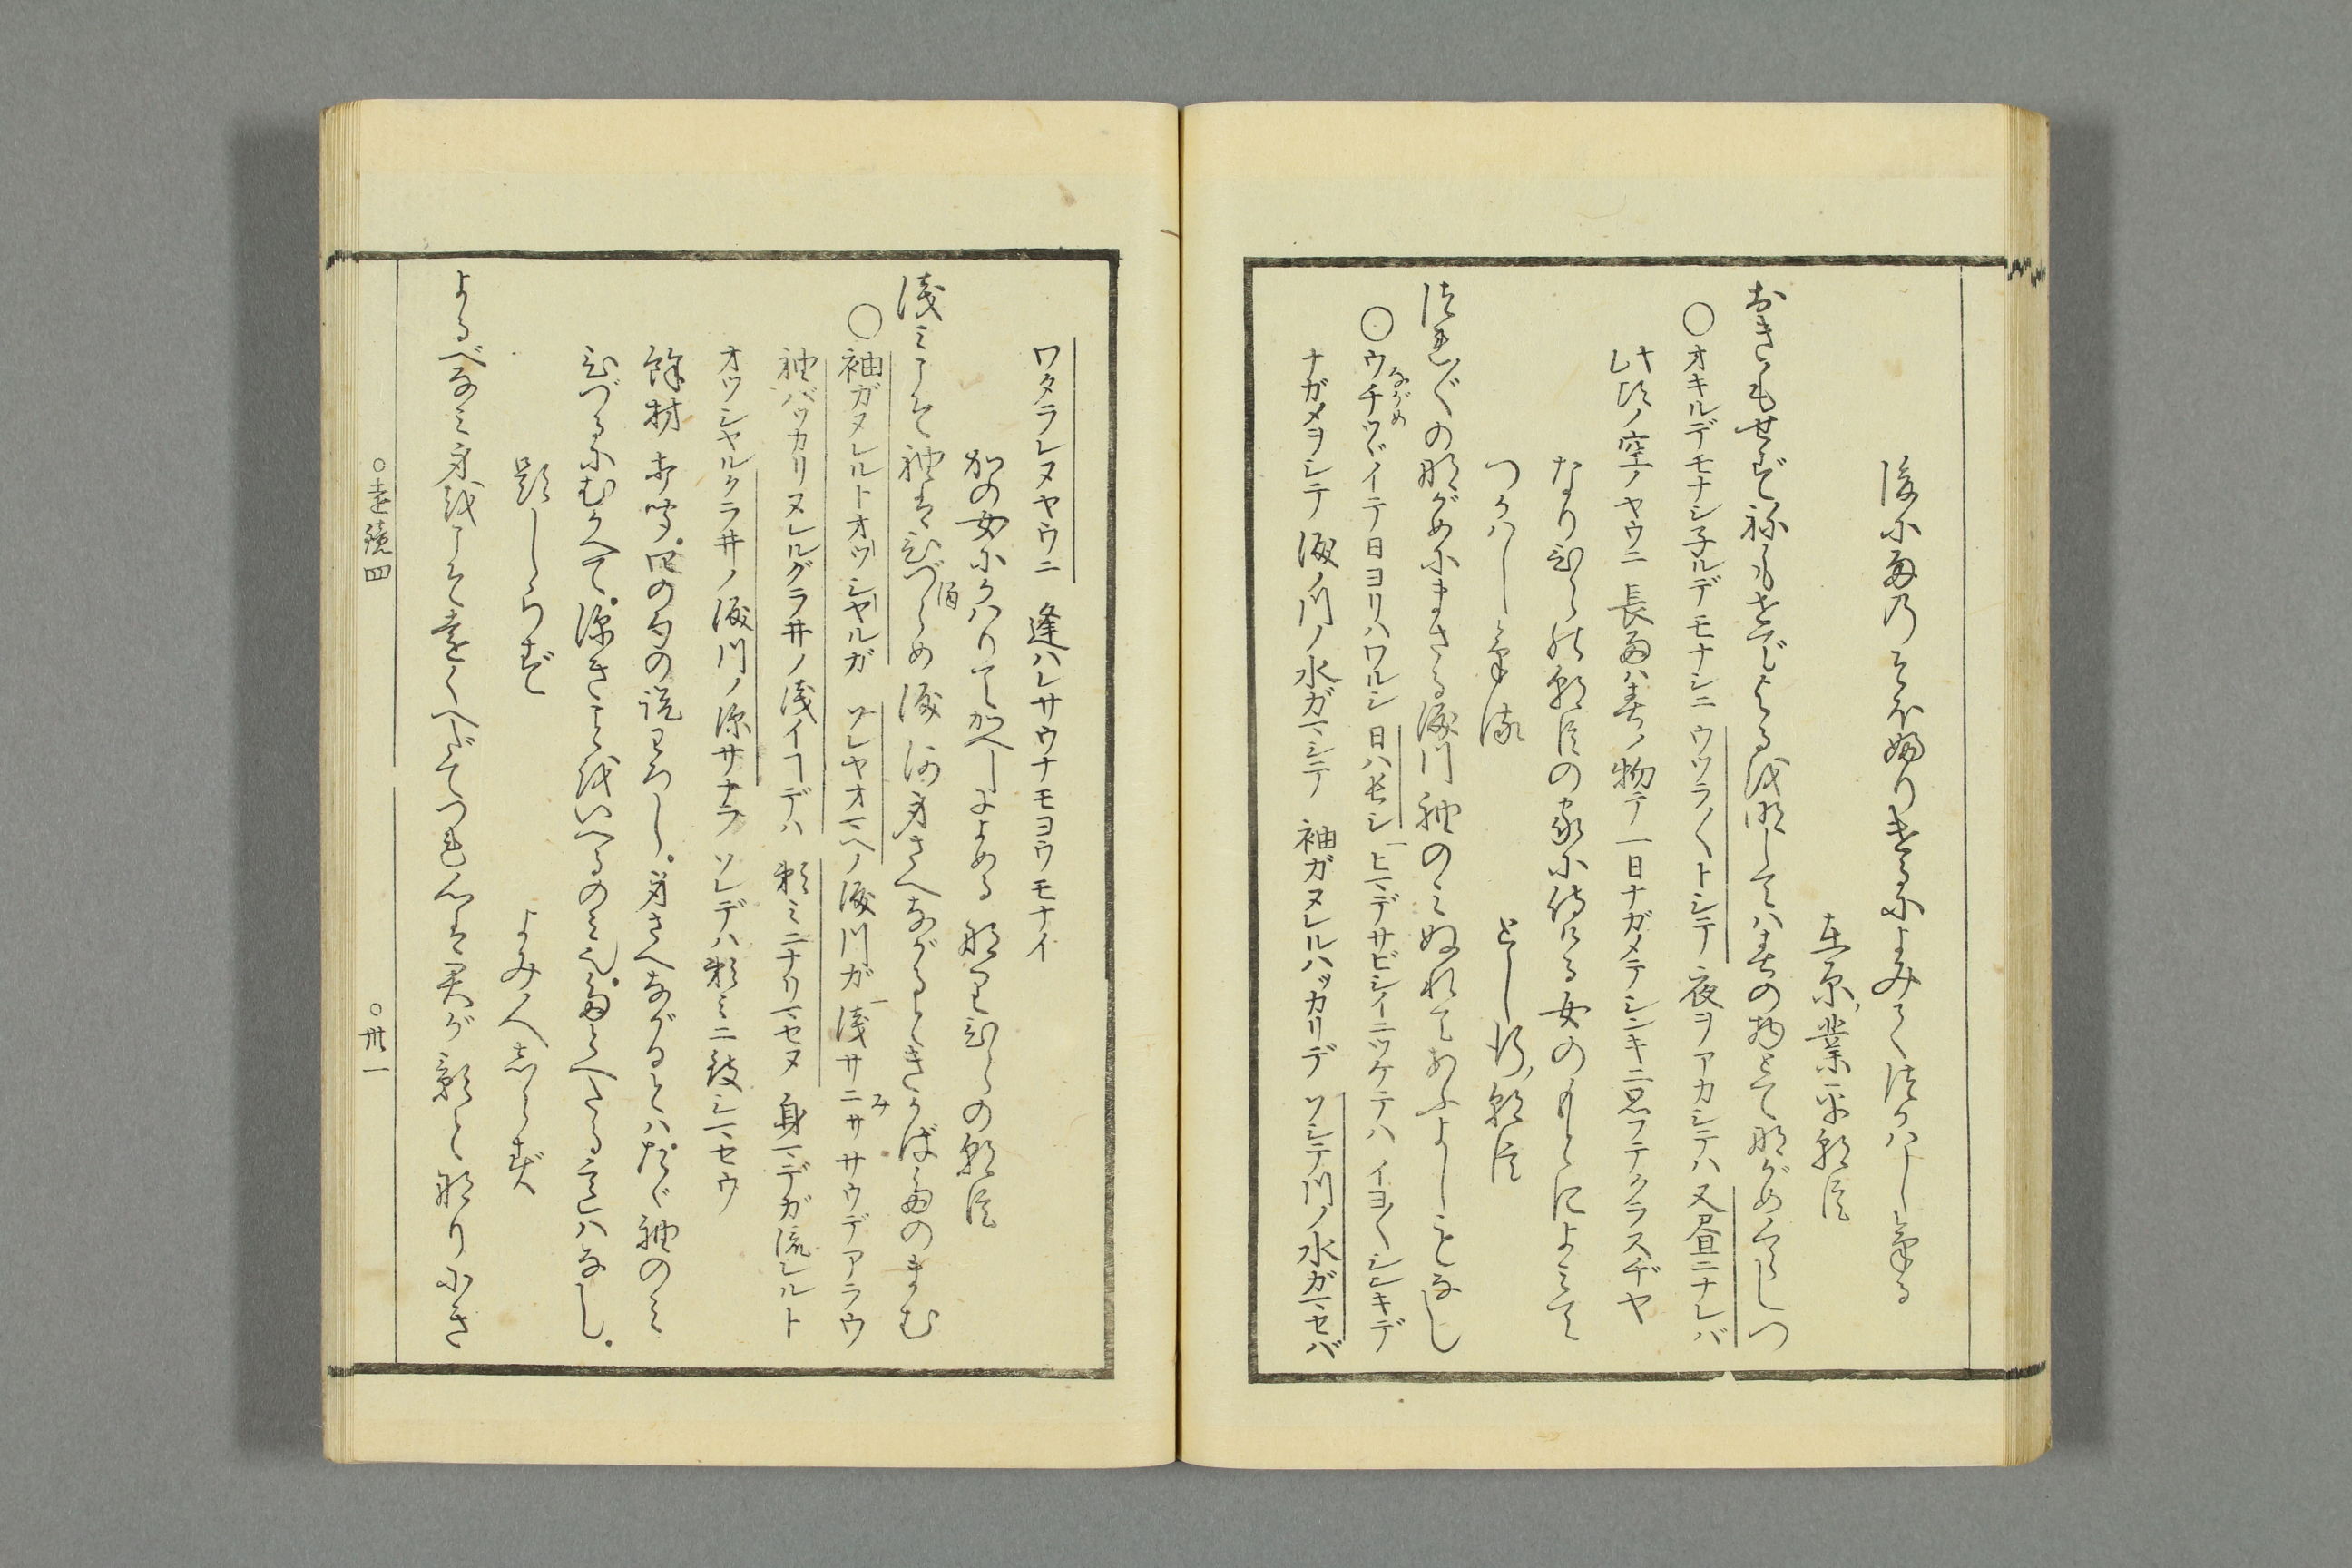 後に雨のそほふりけるによみてつかはしける
在原ノ業平ノ朝臣
おきもせずねもせでよるを明しては春の物とてながめくらしつ
○オキルデモナシ子ルデモナシニ ウツラ〳〵トシテ 夜ヲアカシテハ 又昼ニナレバ
此頃ノ空ノヤウニ 長雨ハ春ノ物テ 一日ナガメテ シンキニ思フテクラスヂヤ
なりひらの朝臣の家に侍ける女のもとによみて
つかはしける
としゆきノ朝臣
つれ〴〵のながめにまさる涙川袖のみぬれてあふよしもなし
○ウチツヾイテ日ヨリハワルシ 日ハ長シ ヒマデサビシイニツケテハ イヨ〳〵シンキデ
ながめ
ナガメヲシテ 涙ノ川ノ水ガマシテ 袖ガヌレルバッカリデ ソシテ川ノ水ガマセバ
ワタラレヌヤウニ 逢ハレサウナモヨウモナイ
かの女にかはりてかへしによめる なりひらの朝臣
浅みこそ袖はひづらめ涙河身さへながるときかばたのまむ
○袖ガヌレルトオッシヤルガ ソレヤオマヘノ涙川ガ 浅サニサウデアラウ
み
袖バッカリヌレルグラ井ノ浅イヿデハ 頼ミニナリマセヌ 身マデガ流レルト
オッシヤルクラ井ノ涙川ノ深サナラ ソレデハ頼ミニ致シマセウ
餘材 打聞。四の句の説わろし。身さへながるとは。たゞ袖のみ
ひづるにむかへて。深きことをいへるのみ也。
題しらず
よみ人しらず
よるべなみ身をこそ遠くへだてつれ心は君が影となりにき
○遠鏡四
○卅一